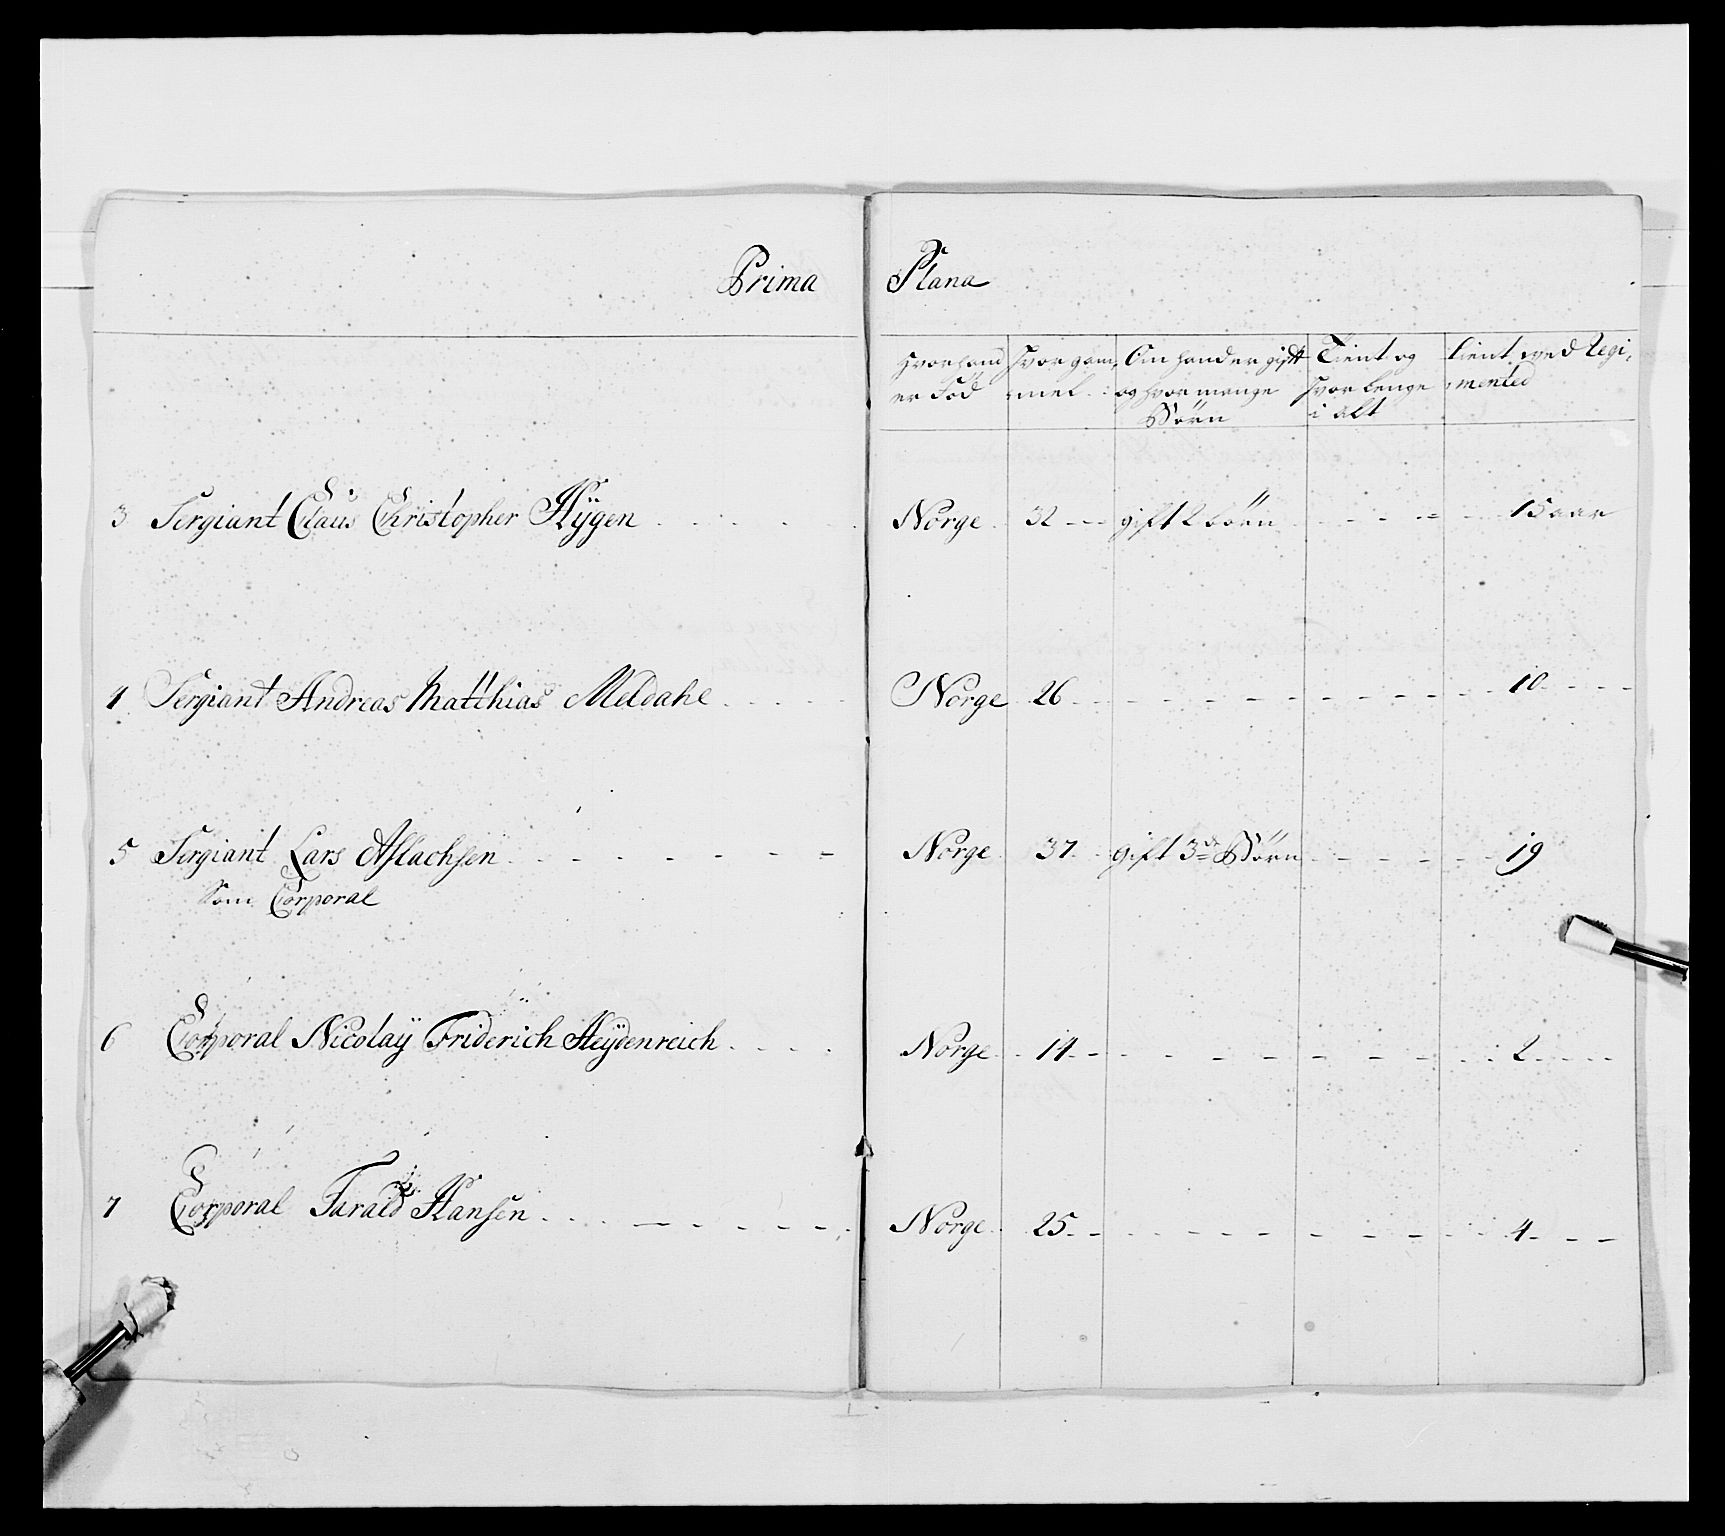 Prima Plana
Hvor hand er Föd
Hvor gam:mel
Om hand er gift og hvor mange Börn
Tient og hvor lenge i alt
Tient ved Regi:mented
3 Sergiant Claus Christopher Hÿgen Norge 32 gift 2 börn 15 aar
4 Sergiant Andreas Matthias Meldahl Norge 26 10
5 Sergiant Lars Aslachsen Norge 37 gift 3de Börn 19
Som Corporal
6 Corporal Nicolaÿ Friderich Heÿdenreich Norge 14 2
7 Corporal Tarald Hansen Norge 25 4